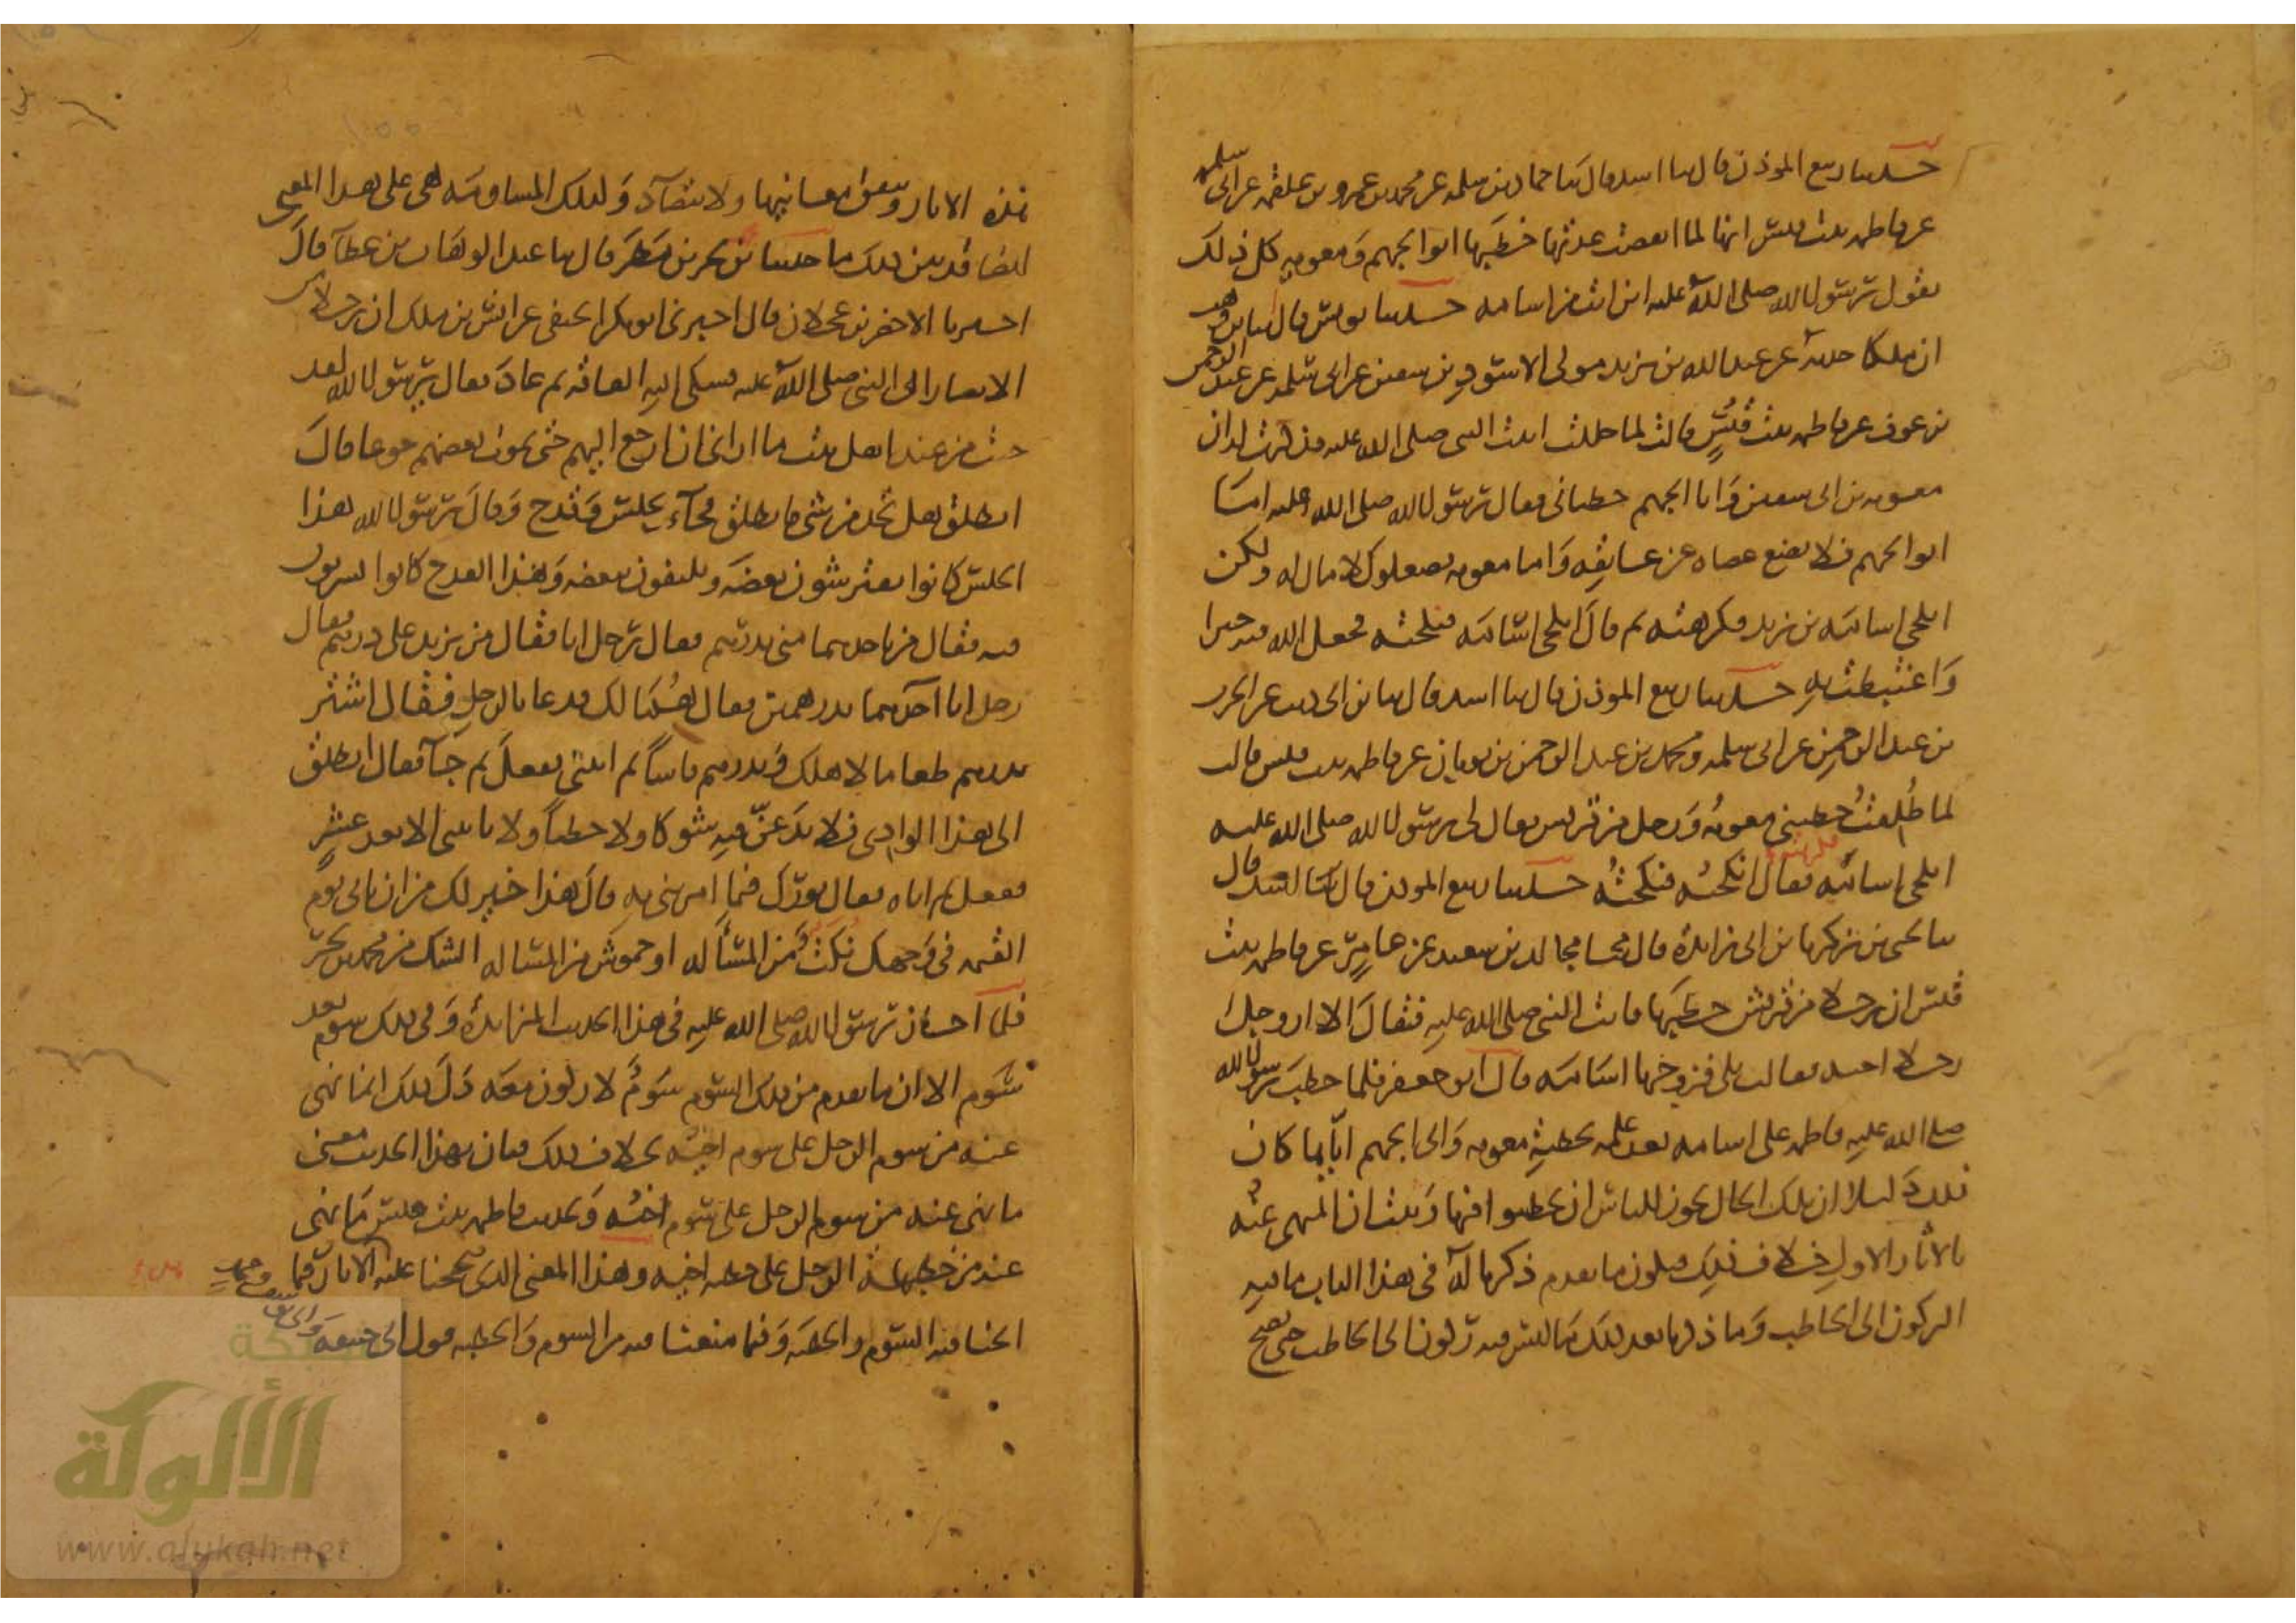 حدثنا ربيع المؤذن قال ثنا اسد قال ثنا حماد بن سلمة عن محمد بن عمرو بن علقمة عن ابى سلمة
عن فاطمة بنت قيس انها لما انقضت عدتها خطبها ابو الجهم ومعوية كل ذلك
يقول رسول الله صلى الله عليه اين انت من اسامة حدثنا يونس قال انا بن وهب
ان ملكا حدثه عن عبد الله بن يزيد مولى الاسود بن سفين عن ابى سلمة عن عبد الرحمن
بن عوف عن فاطمة بنت قيس قالت لما حللت اتيت النبى صلى الله عليه فذكرت له ان
معوية بن ابى سفين وابا الجهم خطبانى فقال رسول الله صلى الله عليه اما
ابو الجهم فلا يضع عصاه عن عاتقه واما معوية فصعلوك لا مال له ولكن
انكحى اسامة بن زيد فكرهته ثم قال انكحى اسامة فنكحته فجعل الله فيه خيرا
واغتبطت به حدثنا ربيع المؤذن قال ثنا اسد قال ثنا بن ابى ذئب عن الحرث
بن عبد الرحمن عن ابى سلمة ومحمد بن عبد الرحمن بن ثوبان عن فاطمة بنت قيس قالت
لما طلقت خطبنى معوية ورجل من قريش فقال لى رسول الله صلى الله عليه
انكحى اسامة فقال انكحه فنكحته حدثنا ربيع المؤذن قال ثنا اسد قال
ثنا يحيى بن زكريا بن ابى زائدة قال ثنا مجالد بن سعيد عن عامر عن فاطمة بنت
قيس ان رجلا من قريش خطبها فاتت النبى صلى الله عليه فقال الا ازوجك
رجلا احبه فقالت بلى فزوجها اسامة قال ابو جعفر فلما خطب رسول الله
صلى الله عليه فاطمة على اسامة بعد علمه بخطبة معوية وابى الجهم اياها كان
ذلك دليلا ان تلك الحال يجوز للناس ان يخطبوا فيها وثبت ان المنهى عنه
بالاثار الاول خلاف ذلك فيكون ما تقدم ذكرنا له فى هذا الباب ما فيه
الركون الى الخاطب وما ذكرنا بعد ذلك ما ليس فيه ركون الى الخاطب حتى تصح
هذه الاثار وتتفق معانيها ولا تتضاد وكذلك المساومة هى على هذا المعنى
ايضا قد بين ذلك ما حدثنا بن بحر بن مطر قال ثنا عبد الوهاب بن عطا قال
اخبرنا الاخضر بن عجلان قال اخبرنى ابو بكر الحنفى عن انس بن ملك ان رجلا من
الانصار اتى النبى صلى الله عليه فشكى اليه الفاقة ثم عاد فقال يا رسول الله لقد
جئت من عند اهل بيت ما ارانى ان ارجع اليهم حتى يموت بعضهم جوعا قال
انطلق هل تجد من شى فانطلق فجاء بحلس وقدح وقال يا رسول الله هذا
الحلس كانوا يفترشون بعضه ويلتفون ببعضه وهذا القدح كانوا يشربون
فيه فقال من ياخذهما منى بدرهم فقال رجل انا فقال من يزيد على درهم فقال
رجل انا آخذهما بدرهمين فقال هما لك فدعا بالرجل فقال اشتر
بدرهم طعاما لاهلك وبدرهم فاسا ثم ائتنى ففعل ثم جا فقال انطلق
الى هذا الوادى فلا تدعن فيه شوكا ولا حطبا ولا تاتنى الا بعد عشر
ففعل ثم اتاه فقال بورك فيما امرتنى به قال هذا خير لك من ان تاتى يوم
القيمة فى وجهك نكت من المسألة او خموش من المسالة الشك من محمد بن بحر
فلما اجاز رسول الله صلى الله عليه فى هذا الحديث المزايدة وفى ذلك سوم بعد
سوم الا ان ما تقدم من ذلك السوم سوم لا ركون معه دل ذلك انما نهى
عنه من سوم الرجل على سوم اخيه بخلاف ذلك فبان بهذا الحديث معنى
ما نهى عنه من سوم الرجل على سوم اخيه وبحديث فاطمة بنت قيس ما نهى
عنه من خطبة الرجل على خطبة اخيه وهذا المعنى الذى صححنا عليه الاثار فيما
ابحنا فيه السوم والخطبة وفيما منعنا فيه من السوم والخطبة قول ابى حنيفة وابى يوسف ومحمد
شبكة
الألوكة
www.alukah.net